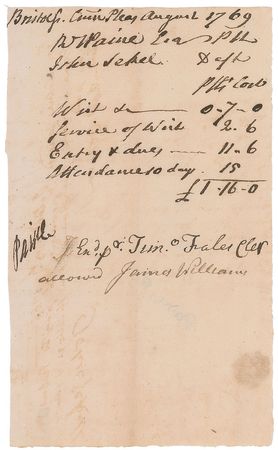 Bristol ss. Com Pleas August 1769
R T Paine Esq Plt
John Deft
Plts Cost
Writ &c 0-7-0
Service of Writ 2.6
Entry & dues 11.6
Attendance 10 days 15
£1-16-0
Paine
Exd pr. Timo Fales Cler
allowed James Williams